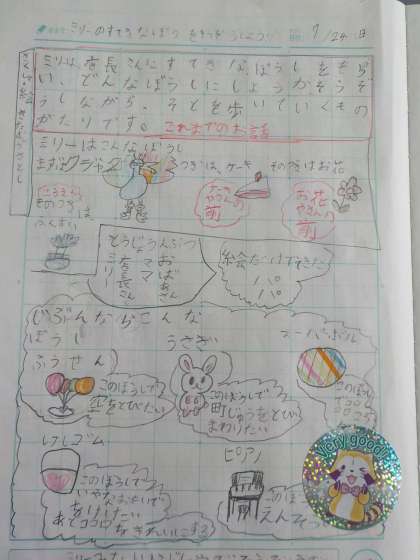 ミリーのすてきなぼうし
7/24日
ミリーは、店長さんにすてきな、ぼうしをもら
い、どんなぼうしにしようかそうぞ
うしながら、そとを歩いていくもの
がたりです。
これまでのお話
ミリーはこんなぼうし
まずはクジャク
つぎは、ケーキ
そのつぎはお花
ケーキやさんの前
お花やさんの前
こうえん
そのつぎは
ふんすい
とうじょうじんぶつ
ママ
おばあさん
店長さん
ミリー
絵会だけでてきた
パパ
じぶんならこんな
ぼうし
うさぎ
スーパーボール
ふうせん
このぼうしで
空をとびたい
このぼうしで
町じゅうをとび
まわりたい
このぼうし
けしゴム
ピアノ
このぼうしで
いやなおもいで
をけしたい
あとココロ
をきれいにする
このぼう
えんそう
Very good!